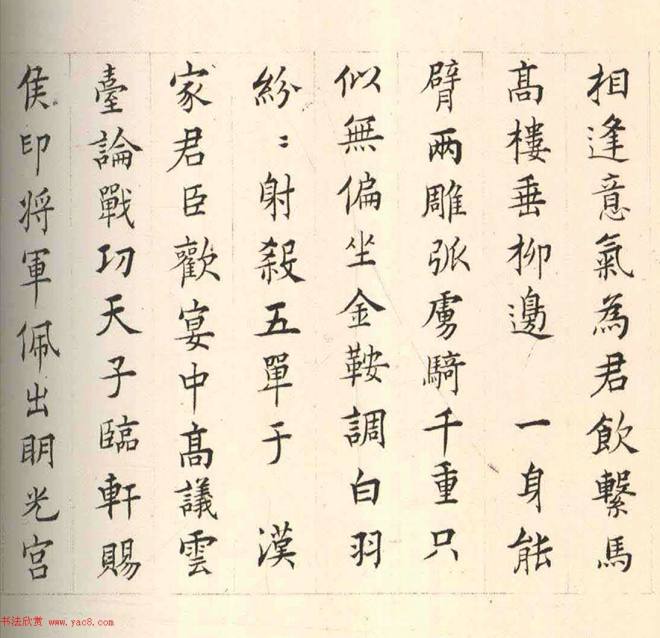 相逢意氣為君飲繫馬
高樓垂柳邊 一身能
臂兩雕弧虜騎千重只
似無偏坐金鞍調白羽
紛〻射殺五單于 漢
家君臣歡宴中高議雲
臺論戰功天子臨軒賜
侯印將軍佩出明光宮
书法欣赏 www.yac8.com